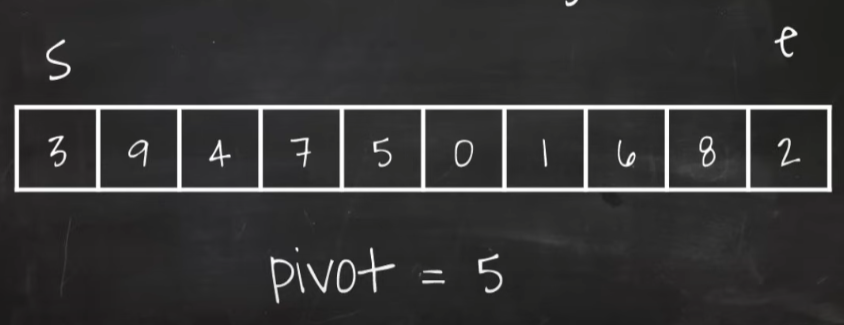 s e
3 9 4 7 5 0 1 6 8 2
pivot = 5